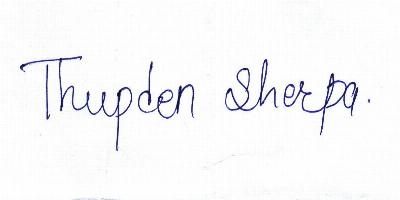 Thupden Sherpa.